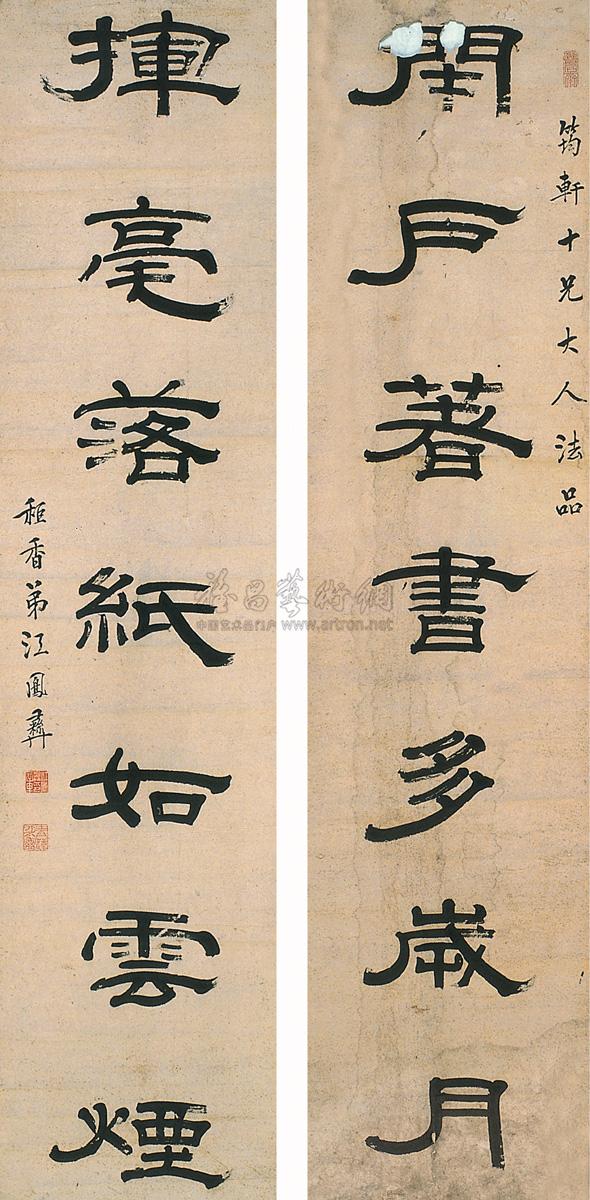 筠軒十兄大人法品
閉戶著書多歲月
揮毫落紙如雲煙
秬香弟江鳳彝
雅昌藝術網
中国艺术品门户 www.artron.net